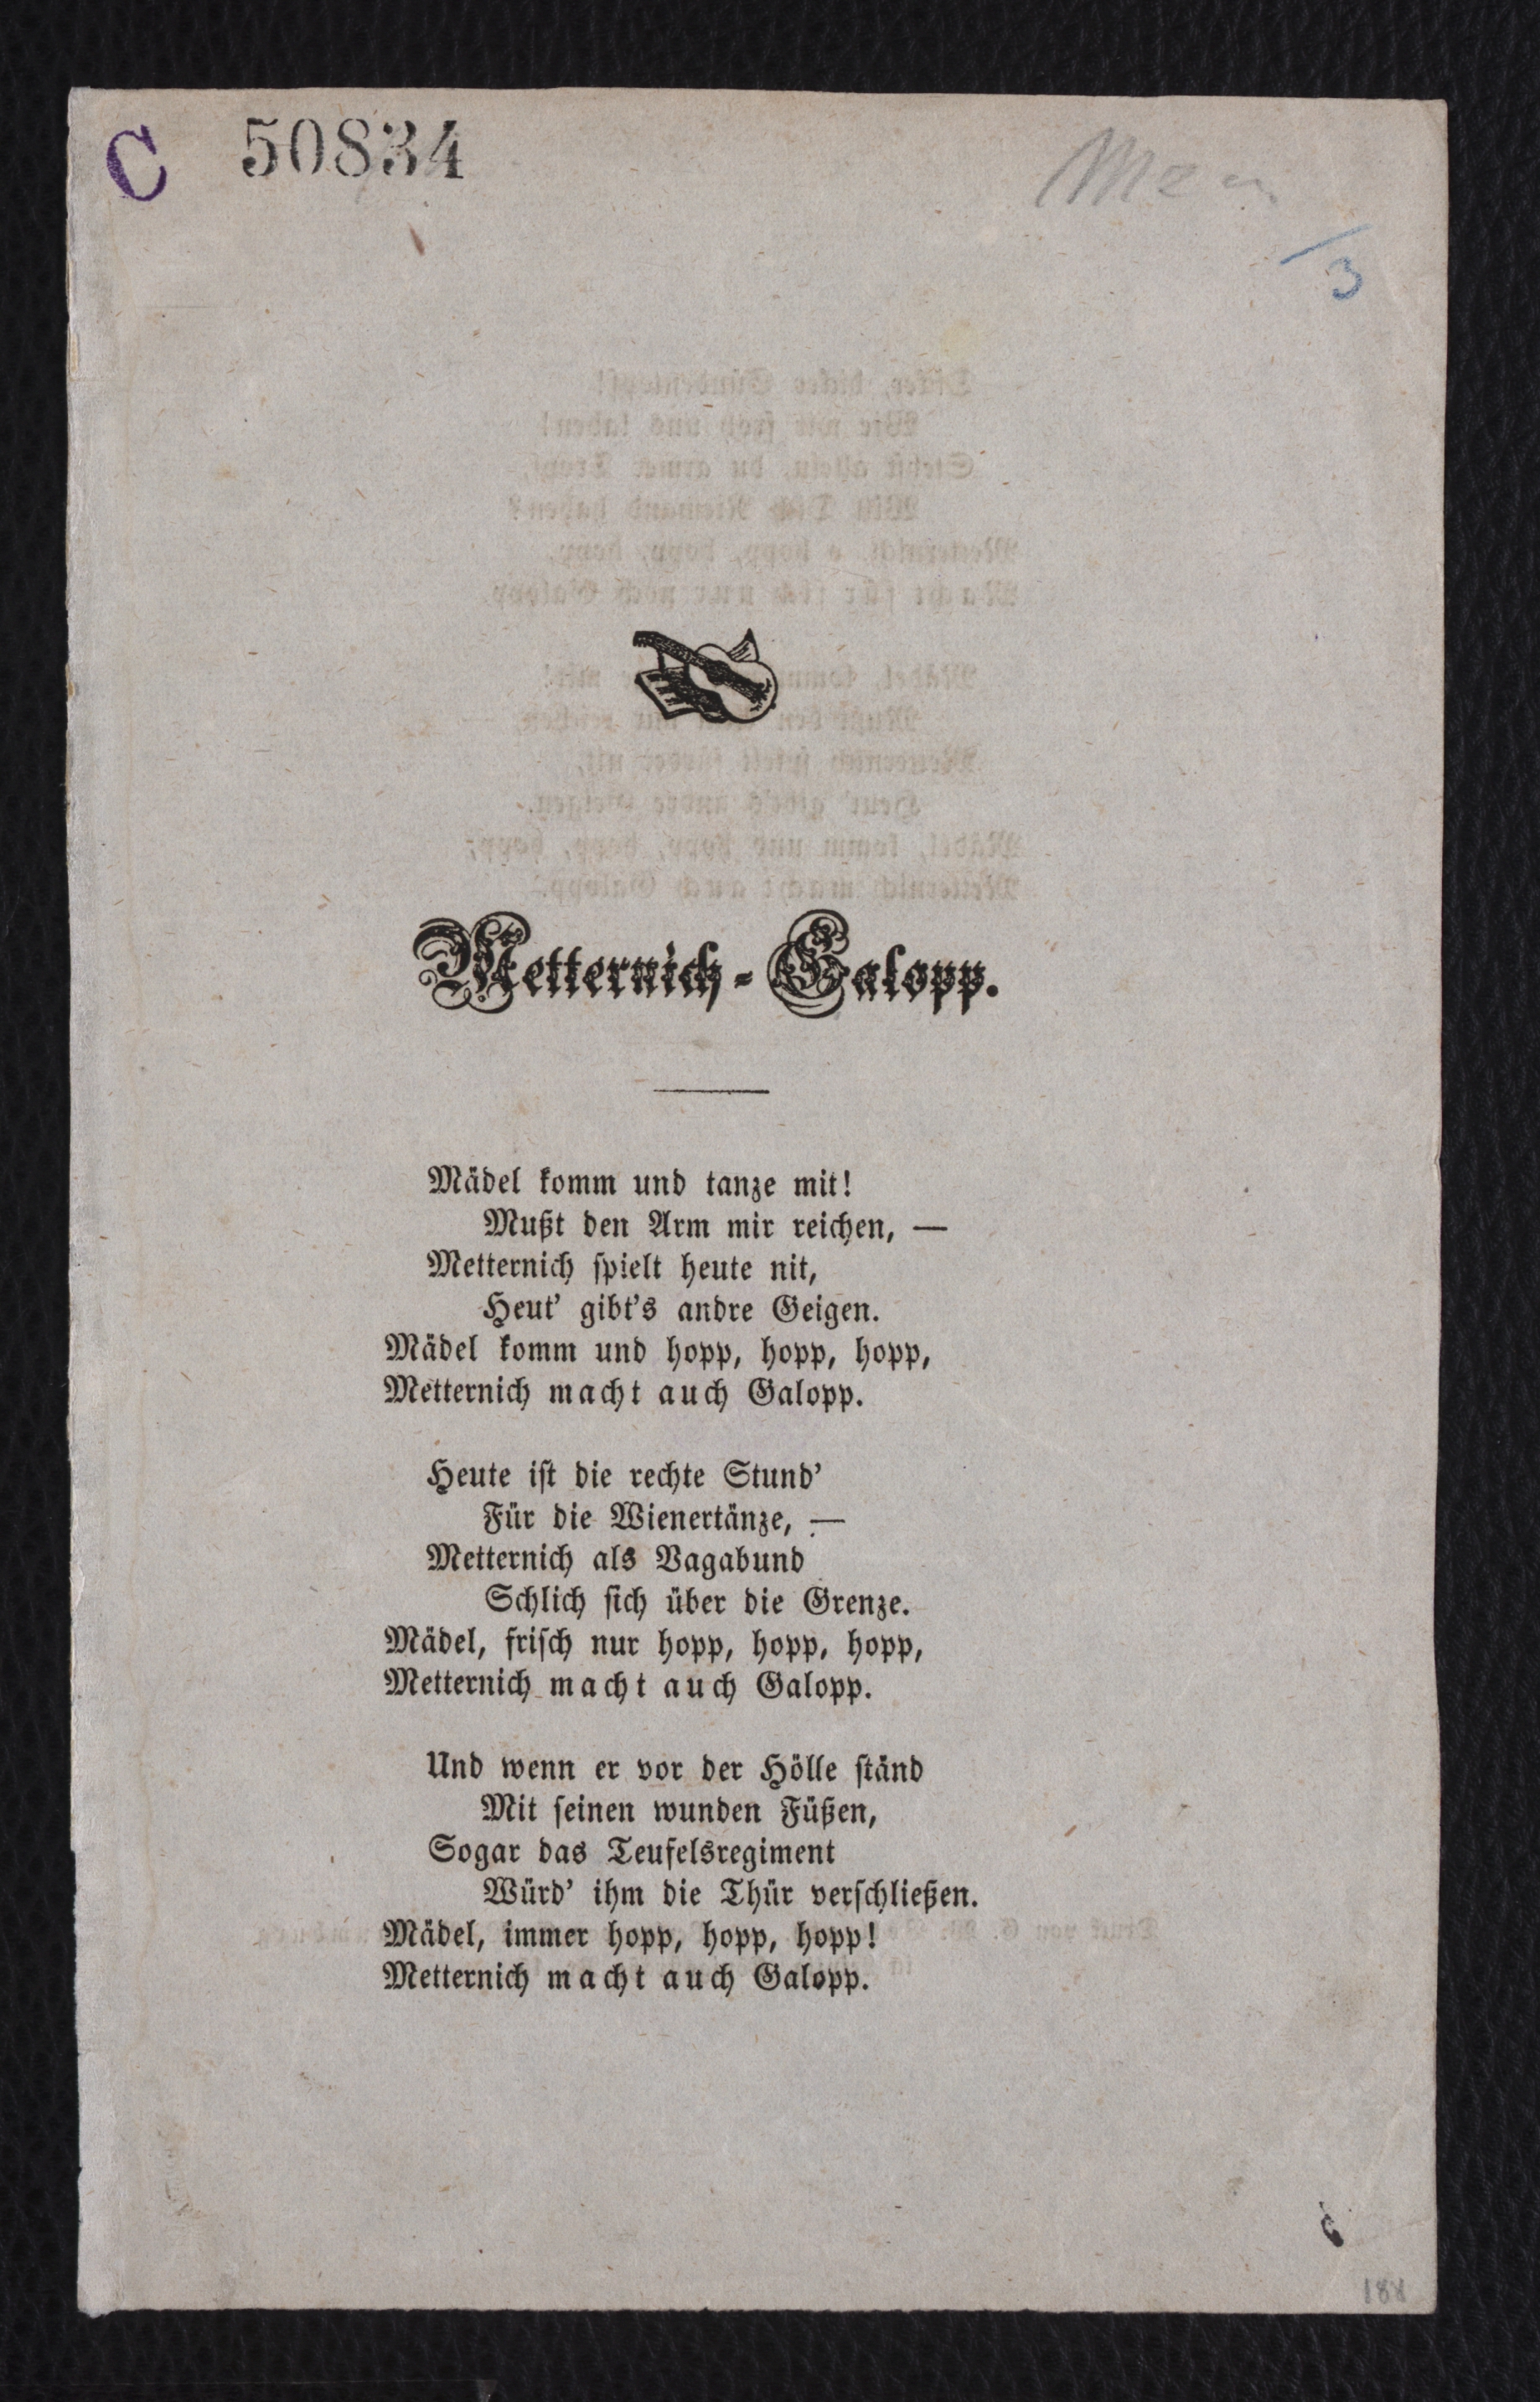 C 50834
3
Metternich-Galopp.
Mädel komm und tanze mit!
Mußt den Arm mir reichen, —
Metternich spielt heute nit,
Heut' gibt's andre Geigen.
Mädel komm und hopp, hopp, hopp,
Metternich macht auch Galopp.
Heute ist die rechte Stund'
Für die Wienertänze, —
Metternich als Vagabund
Schlich sich über die Grenze.
Mädel, frisch nur hopp, hopp, hopp,
Metternich macht auch Galopp.
Und wenn er vor der Hölle ständ
Mit seinen wunden Füßen,
Sogar das Teufelsregiment
Würd' ihm die Thür verschließen.
Mädel, immer hopp, hopp, hopp!
Metternich macht auch Galopp.
188